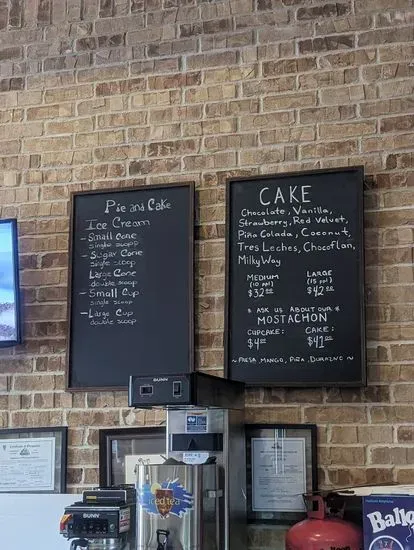 Pie and Cake
Ice Cream
- Small Cone
single scoop
- Sugar Cone
single scoop
Large Cone
double scoop
- Small Cup
single scoop
- Large Cup
double scoop
CAKE
Chocolate, Vanilla,
Strawberry, Red Velvet,
Piña Colada, Coconut,
Tres Leches, Chocoflan,
MilkyWay
MEDIUM
(10 ppl)
$32.00
LARGE
(15 ppl)
$42.00
* ASK US ABOUT OUR *
MOSTACHON
CUPCAKE:
$4.00
CAKE:
$41.00
~ FRESA, MANGO, PIÑA, DURAZNO ~
BUNN
iced tea
BUNN
Ball